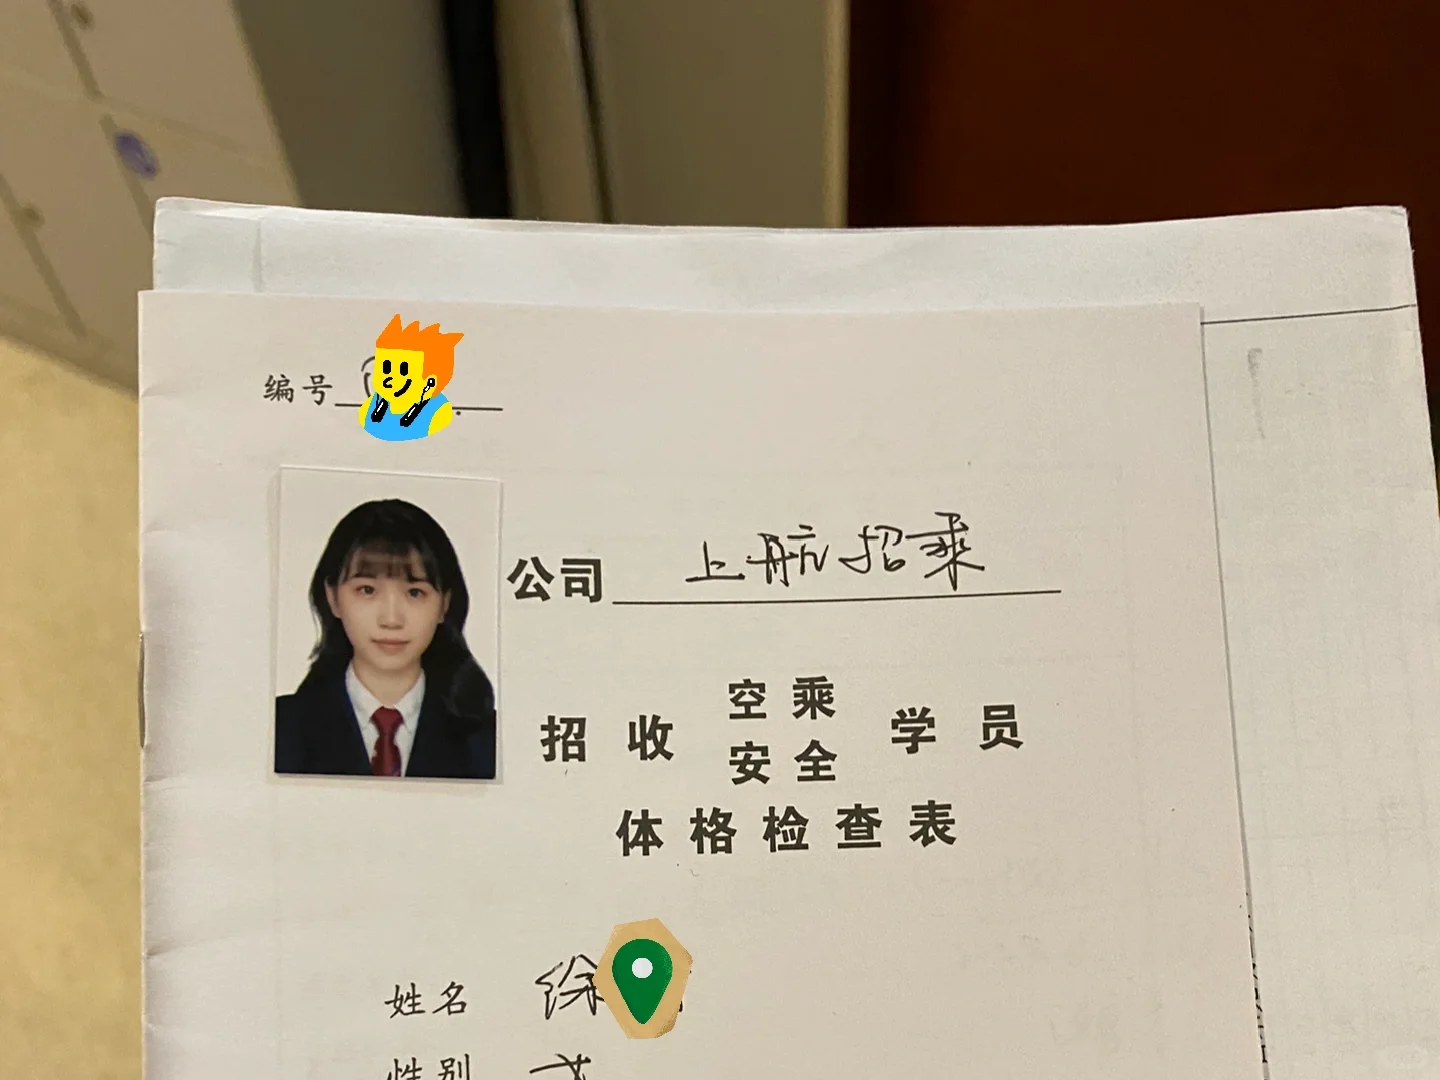 编号
公司 上航招乘
招收 空乘 学员
安全
体格检查表
姓名 徐
性别 女